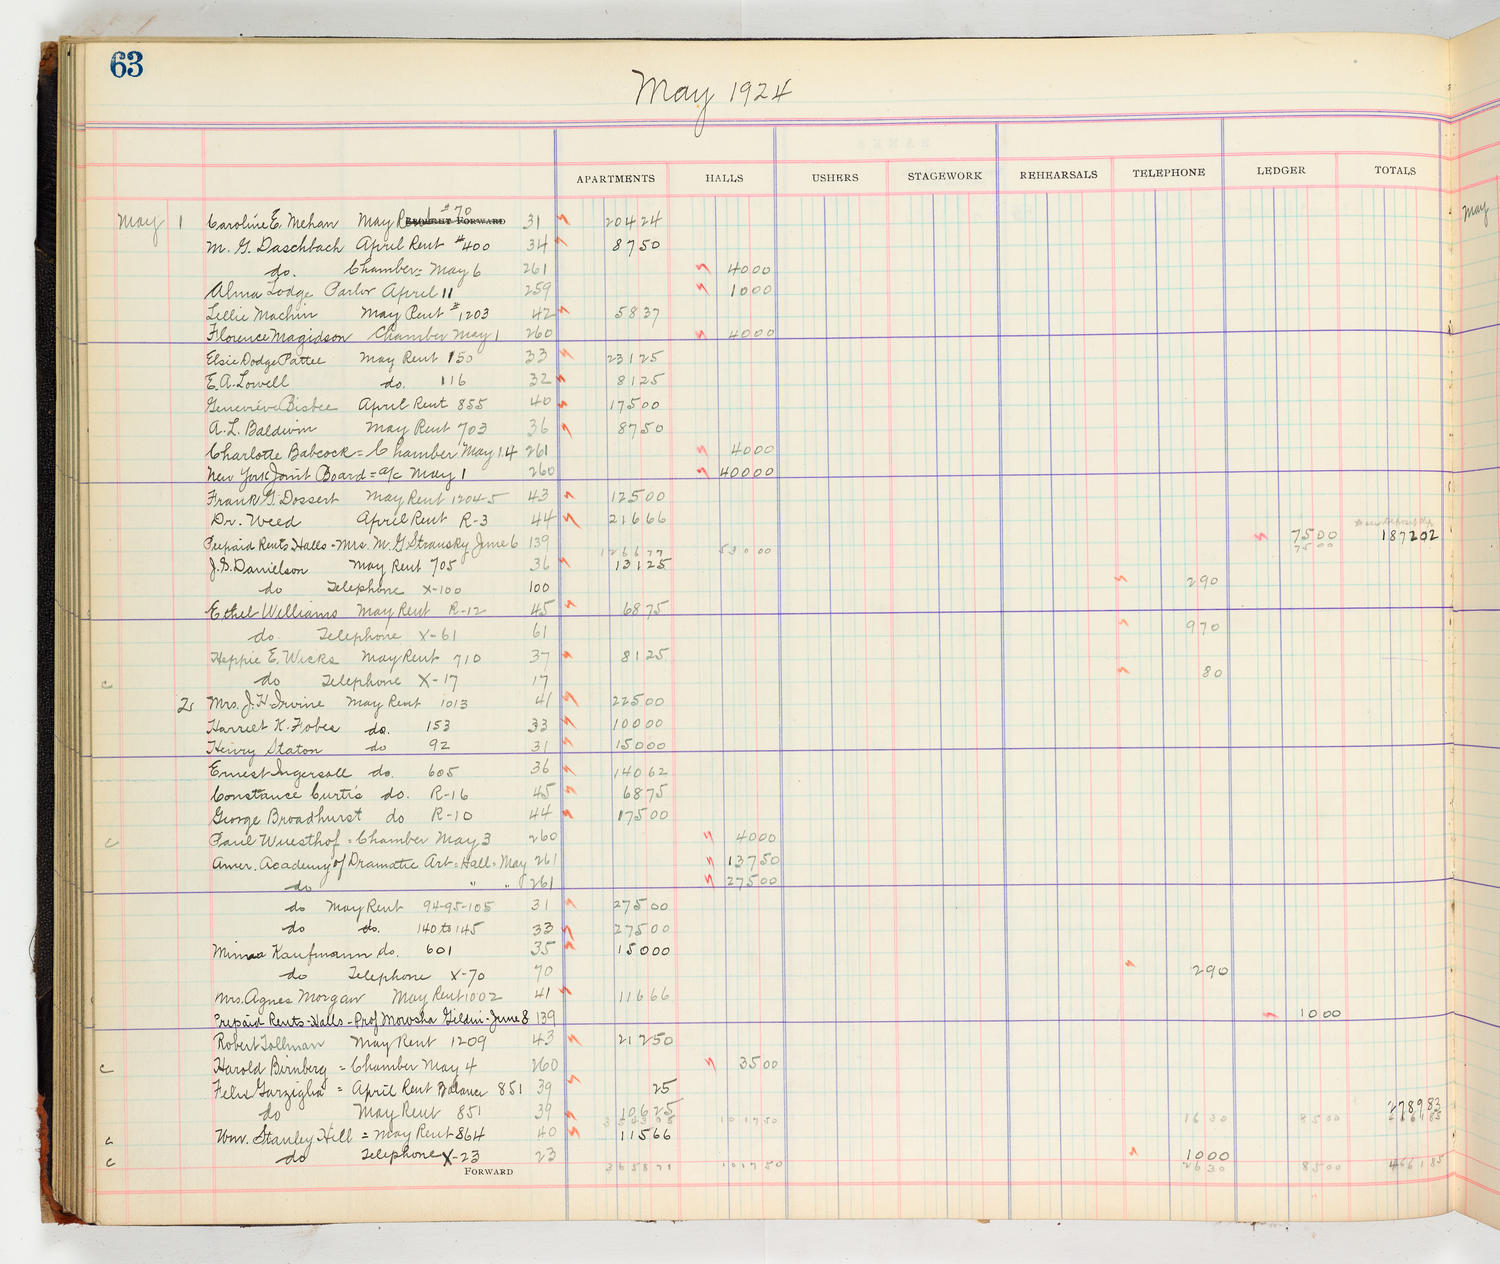 63
May 1924
APARTMENTS HALLS USHERS STAGEWORK REHEARSALS TELEPHONE LEDGER TOTALS
May 1 Caroline E. Mehan May Rent #70 BROUGHT FORWARD 31 20424
M. G. Daschbach April Rent #400 34 8750
do. Chamber = May 6 261 4000
Alma Lodge Parlor April 11 259 1000
Lillie Machin May Rent #1203 42 5837
Florence Magidson Chamber May 1 260 4000
Elsie Dodge Pattee May Rent 150 33 23125
E. A. Lowell do. 116 32 8125
Genevieve Bisbee April Rent 855 40 17500
A. L. Baldwin May Rent 703 36 8750
Charlotte Babcock = Chamber May 14 261 4000
New York Joint Board = a/c May 1 260 40000
Frank G. Dossert May Rent 1204-5 43 12500
Dr. Weed April Rent R-3 44 21666
Prepaid Rents Halls - Mrs. M. G. Stransky June 6 139 7500 187202
126677 53000 7500
J. S. Danielson May Rent 705 36 13125
do Telephone X-100 100 290
Ethel Williams May Rent R-12 45 6875
do. Telephone X-61 61 970
Heppie E. Wicks May Rent 710 37 8125
c do Telephone X-17 17 80
2 Mrs. J. H. Irvine May Rent 1013 41 22500
Harriet K. Fobes do. 153 33 10000
Henry Staton do 92 31 15000
Ernest Ingersoll do. 605 36 14062
Constance Curtis do. R-16 45 6875
George Broadhurst do R-10 44 17500
c Paul Wuesthof = Chamber May 3 260 4000
Amer. Academy of Dramatic Art = Hall = May 261 13750
do " " 261 27500
do May Rent 94-95-105 31 27500
do do. 140 to 145 33 27500
Minna Kaufmann do. 601 35 15000
do Telephone X-70 70 290
Mrs. Agnes Morgan May Rent 1002 41 11666
Prepaid Rents - Halls - Prof Mowsha Gildin - June 8 139 1000
Robert Tollman May Rent 1209 43 21250
c Harold Birnberg = Chamber May 4 260 3500
Felix Garziglia = April Rent Balance 851 39 25
do May Rent 851 39 10625 278983
101750 1630 8500
c Wm. Stanley Hill = May Rent 864 40 11566
c do Telephone X-23 23 1000
FORWARD 365871 101750 2630 8500 466185